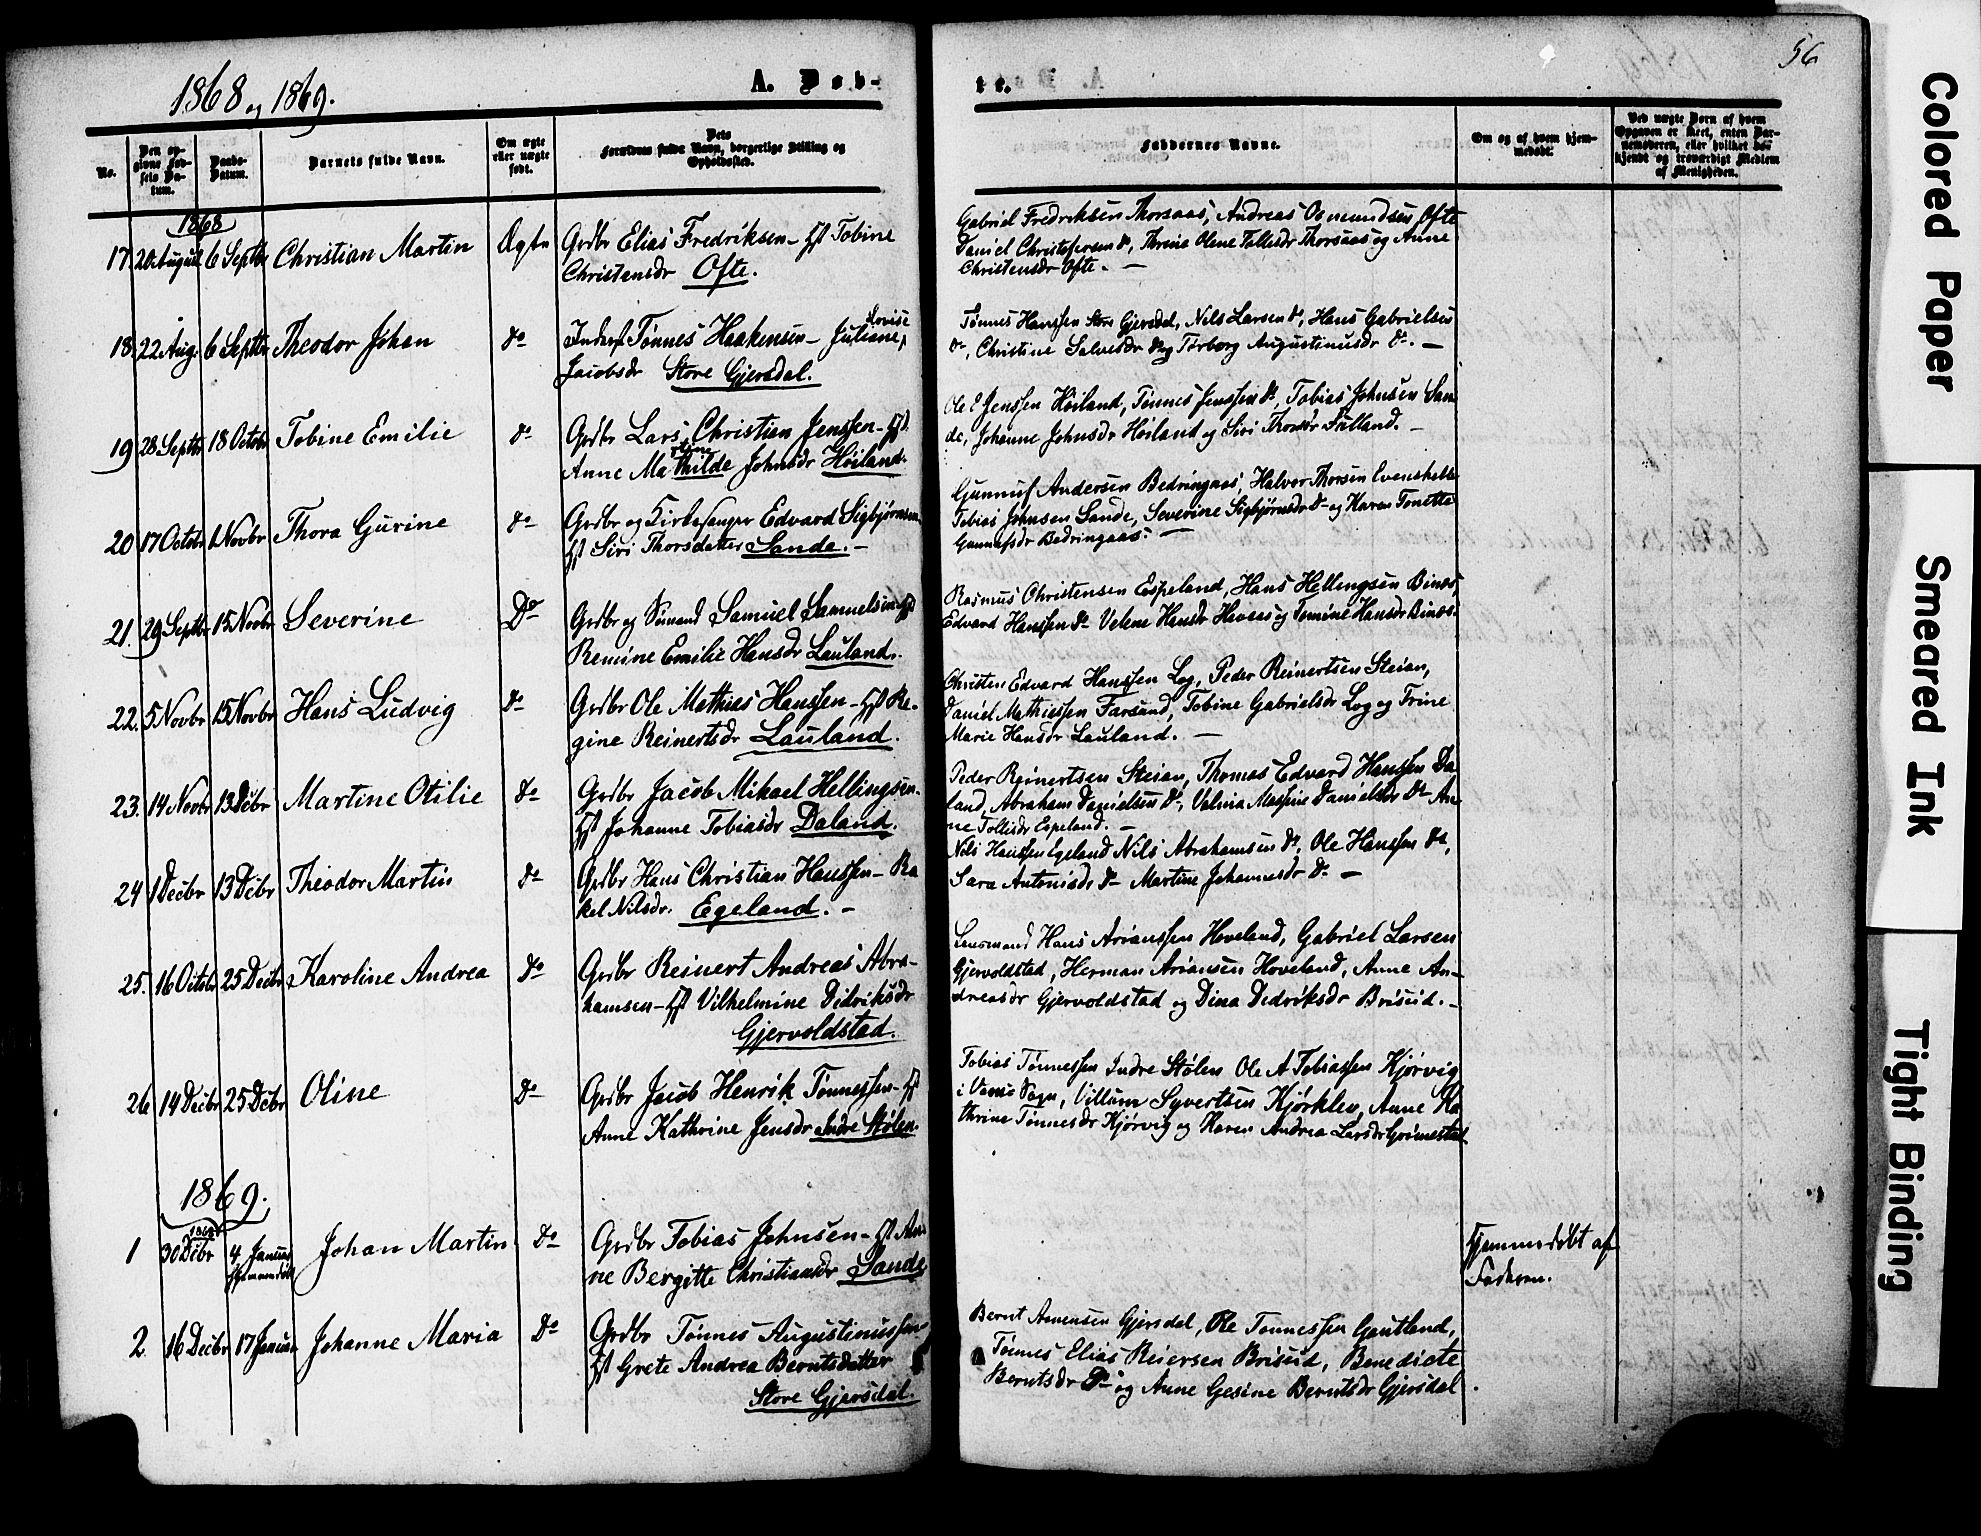 1868 og 1869.
A. Døb-
te.
56
No.
Den op-
givne Fød-
sels Da-
tum.
Daabs-
Datum.
Barnets fulde Navn.
Om ægte
eller uægte
født.
Dets
Forældres fulde Navn, borgerlige Stilling og
Opholdssted.
Faddernes Navne.
Om og af hvem hjem-
medøbt.
Ved uægte Børn af hvem
Opgaven er skeet, enten Bar-
nemoderen, eller hvilket be-
kjendt og troværdigt Medlem
af Menigheden.
1868
17. 20 August 6 Septbr Christian Martin Ægte Grdbr Elias Fredriksen - Hst Tobine
Christensdr Ofte.
Gabriel Fredriksen Thorsaas, Andreas Osmundsen Ofte
Daniel Christophersen do, Thrine Olene Tollisdr Thorsaas og Anne
Christensdr Ofte. -
18. 22 Aug. 6 Septbr Theodor Johan do Inderst Tønnes Haakensen - Juliane Lovise
Jacobsdr Store Gjersdal.
Tønnes Hanssen Store Gjersdal, Nils Larsen do, Hans Gabrielsen
do, Christine Salvesdr do og Torborg Augustinusdr do. -
19 28 Septbr 18 Octobr Tobine Emilie do Grdbr Lars Christian Jenssen - Hst.
Anne Mathilde Johnsdr Høiland.
Ole E Jenssen Høiland, Tønnes Jenssen do, Tobias Johnsen San
de, Johanne Johnsdr Høiland og Siri Thorsdr Fuland. -
20 17 Octobr 1 Novbr Thora Gurine do Grdbr og Kirkesanger Edvard Sigbjørnsen
Hst Siri Thorsdatter Sande. -
Gunnuf Andersen Bedringaas, Halvor Thorsen Evenshelle
Tobias Johnsen Sande, Severine Sigbjørnsdr do og Karen Tonette
Gunnufsdr Bedringaas. -
21. 29 Septbr 15 Novbr Severine Do Grdbr og Sømand Samuel Samuelsen - Hst
Remine Emilie Hansdr Lauland.
Rasmus Christensen Espeland, Hans Hellengsen Binæs,
Edvard Hanssen do Velene Hansdr Havaas og Tomine Hansdr Binæs.
22. 5 Novbr 15 Novbr Hans Ludvig do Grdbr Ole Mathias Hanssen - Hst Re-
gine Reinertsdr Lauland.
Christen Edvard Hanssen Log, Peder Reinertsen Steian,
Daniel Mathiassen Farsund, Tobine Gabrielsdr Log og Trine
Marie Hansdr Lauland. -
23. 14 Novbr 13 Debr Martine Otilie do Grdbr Jacob Mikael Hellingsen.
Hst Johanne Tobiasdr Daland.
Peder Reinertsen Steian, Thomas Edvard Hanssen Da
land, Abraham Danielsen do, Velina Massine Danielsdr Do An
ne Tollisdr Espeland. -
24 1 Decbr 13 Debr Theodor Martin do Grdbr Hans Christian Hanssen - Ra
kel Nilsdr. Egeland. -
Nils Hanssen Egeland Nils Abrahamsen do, Ole Hanssen do,
Sara Antonisdr do - Martine Johannesdr do -
25. 16 Octobr 25 Decbr Karoline Andrea do Grdbr Reinert Andreas Abra-
hamsen - Hst Vilhelmine Didriksdr
Gjervoldstad.
Lensmand Hans Arianssen Hoveland, Gabriel Larsen
Gjervoldstad, Herman Ariansen Hoveland, Anne An-
dreasdr Gjervoldstad og Dina Dedriksdr Briseid. -
26 14 Decbr 25 Debr Oline Do Grdbr Jacob Henrik Tønnessen - Hst
Anne Kathrine Jensdr Indre Stølen.
Tobias Tønnessen Indre Stølen Ole A Tobiassen Kjørvig
i Vanse Sogn, Villum Syvertsen Kjørklev, Anne Ka
thrine Tønnesdr Kjørvig og Karen Andrea Larsdr Grimestad
1869.
1 30 Debr 1868 4 Januar Hjemmedøbt Johan Martin Do Grdbr Tobias Johnsen - Hst An
ne Bergitte Christiansdr Sande
Hjemmedøbt af
Faderen.
2 16 Decbr 17 Januar Johanne Maria Do Grdbr Tønnes Augustinussen
Hst Grete Andrea Berntsdatter
Store Gjersdal.
Bernt Arnensen Gjersdal, Ole Tønnessen Gautland,
Tønnes Elias Reiersen Briseid, Benedicte
Berntsdr Do og Anne Gesine Berntsdr Gjersdal.
Colored Paper
Smeared Ink
Tight Binding